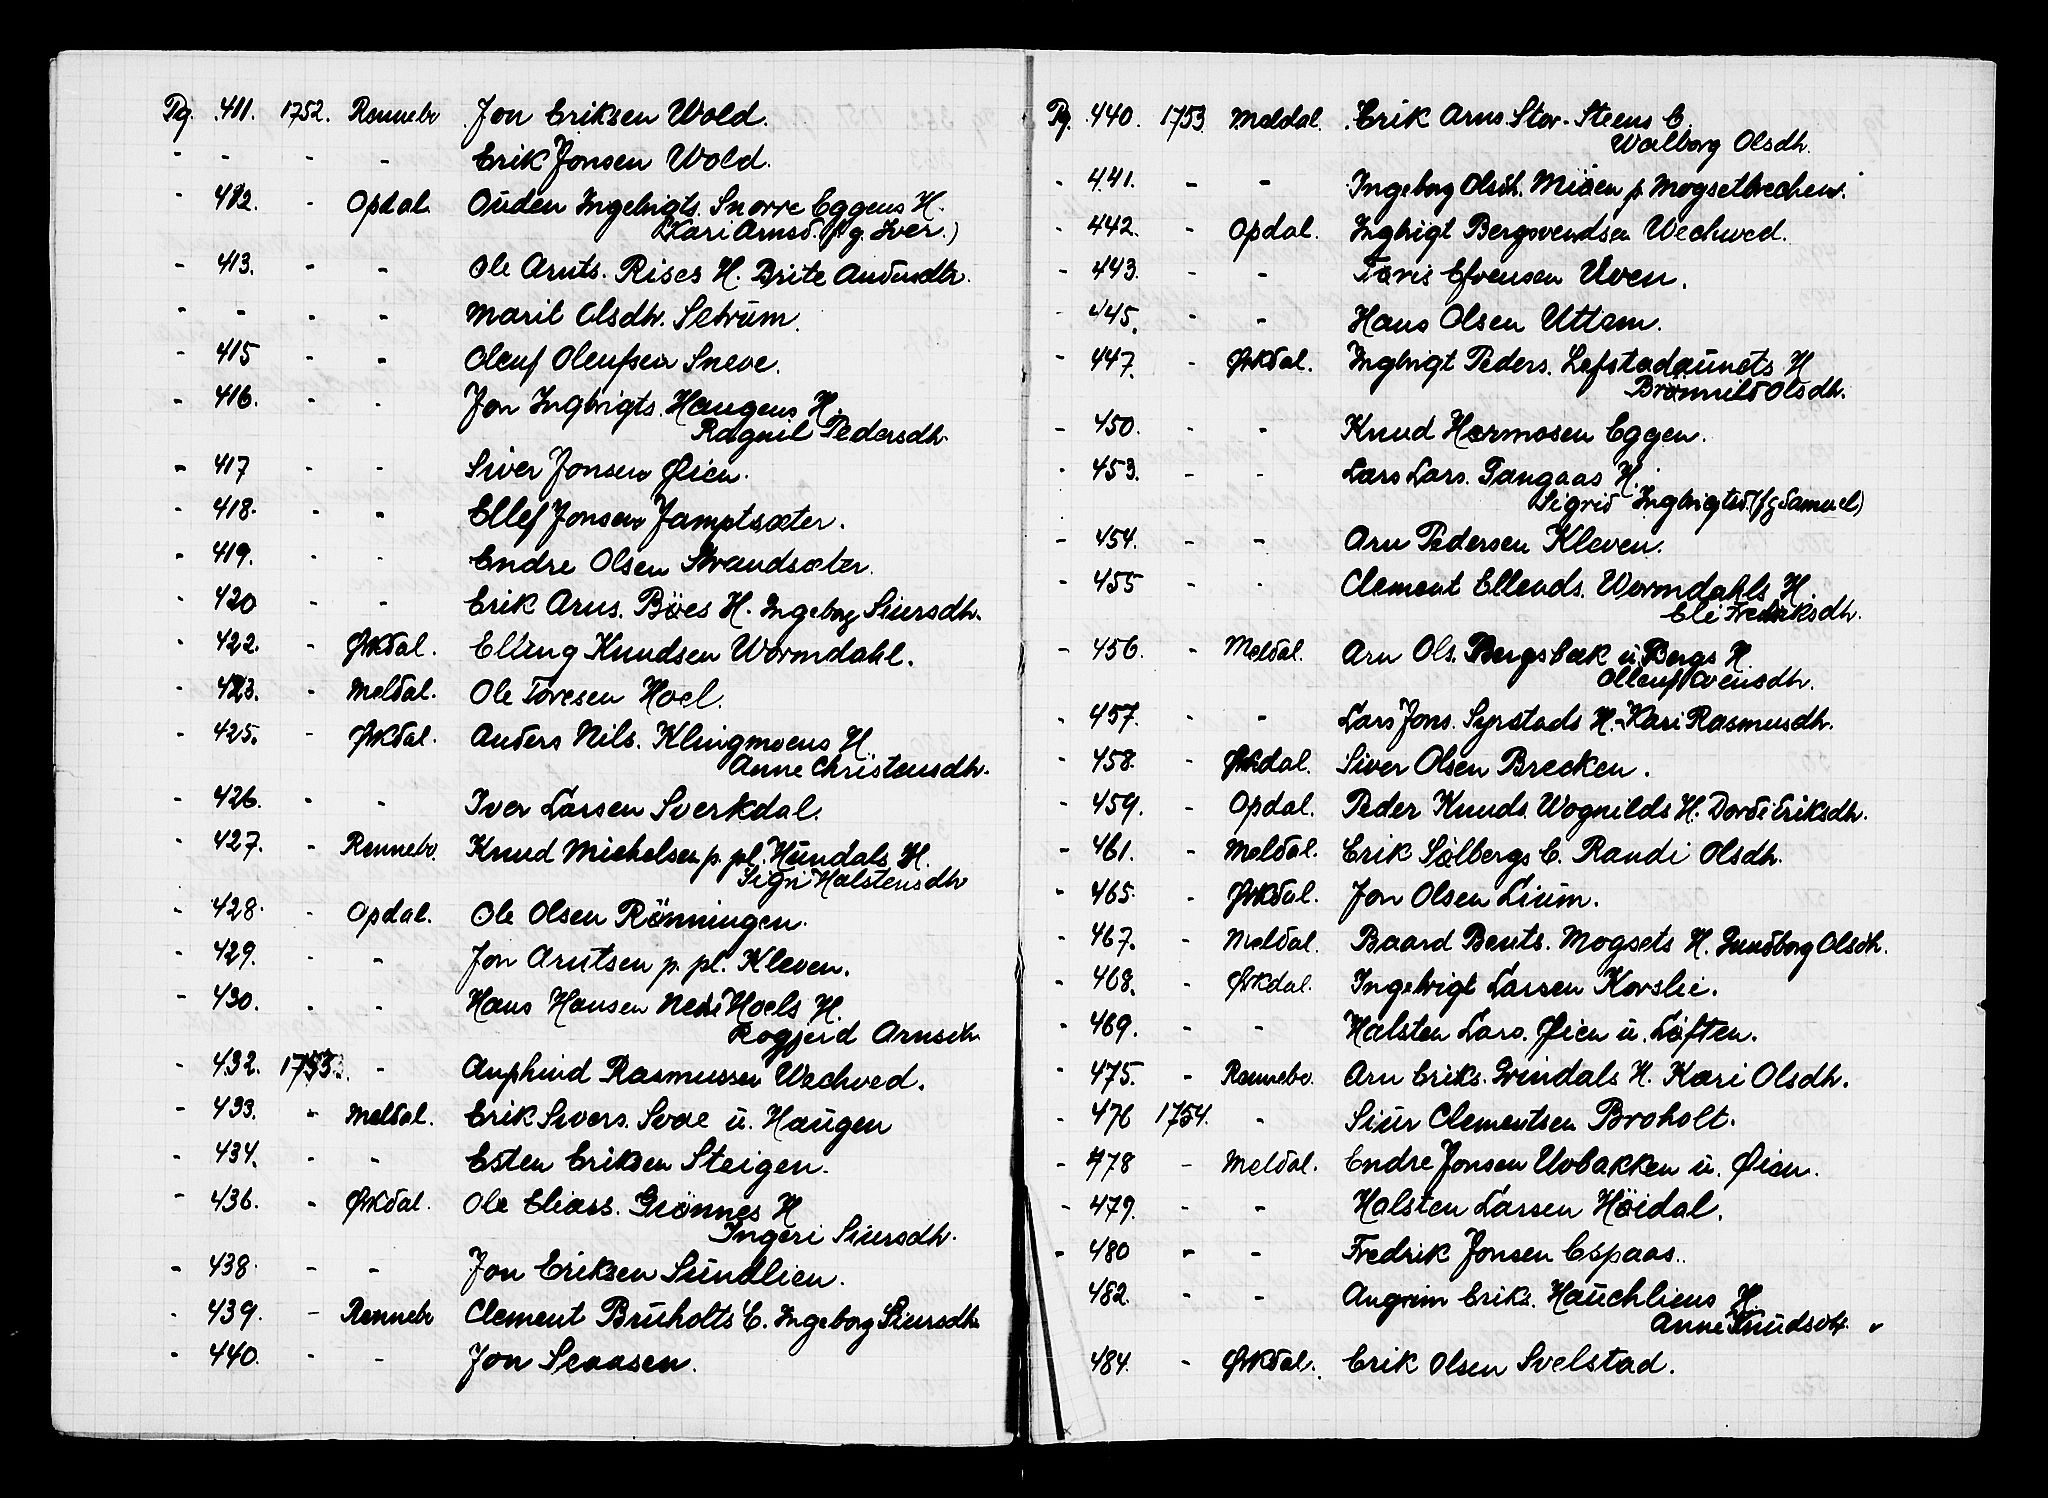 Pg. 411. 1752. Rennebo Jon Eriksen Wold.
- - - - Erik Jonsen Wold.
- 412. - Opdal. Ouden Ingebrigts. Snorre Eggens H.
Kari Arnsd. (f. g. Iver.)
- 413. - - Ole Arnts. Rises H. Brite Audensdh.
- - - - Marit Olsdh. Setrum.
- 415 - - Oleuf Oleufsen Sneve.
- 416. - - Jon Ingbrigts. Haugens H.
Ragnil Pedersdh.
- 417 - - Siver Jonsen Øien.
- 418. - - Ellef Jonsen Jamptsæter.
- 419. - - Endre Olsen Strandsæter.
- 420 - - Erik Arns. Böes H. Ingeborg Siursdh.
- 422. - Ørkdal. Elling Knudsen Wormdahl.
- 423. - Meldal. Ole Toresen Hoel.
- 425. - Ørkdal. Anders Nils. Klingmoens H
Anne Christensdh.
- 426. - - Iver Larsen Sverkdal.
- 427. - Rennebo. Knud Michelsen p. pl. Hundals H.
Sigri Halstensdh
- 428. - Opdal. Ole Olsen Rönningen.
- 429. - - Jon Arntsen p. pl. Kleven.
- 430. - - Hans Hansen Nedre Hoels H.
Rogjerd Arnsdh.
- 432. 1753. - Amphind Rasmussen Wechved.
- 433. - Meldal. Erik Sivers. Svae u. Haugen
- 434. - - Esten Eriksen Steigen.
- 436. - Ørkdal. Ole Eliass. Grönnes H
Ingeri Siursdh.
- 438. - - Jon Eriksen Sundlien.
- 439. - Rennebo Clement Bruholts E. Ingeborg Siursdh.
- 440. - - Jon Seaasen.
Pg. 440. 1753 Meldal. Erik Arns. Stor-Steens E.
Walborg Olsdh.
- 441. - - Ingeborg Olsdh. Miöen p. Mogsetbrechen.
- 442. - Opdal. Ingbrigt Bergsvendsen Wechved.
- 443. - - Toris Efvensen Uven.
- 445. - - Hans Olsen Uttem.
- 447. - Ørkdal. Ingbrigt Peders. Lefstadaunets H
Brönnild Olsdh.
- 450. - - Knud Hermosen Eggen.
- 453. - - Lars Lars. Tangaas H.
Sigrid Ingbrigtsd. (f. g. Samuel)
- 454. - - Arn Pedersen Kleven.
- 455 - - Clement Ellevds. Wormdahls H.
Eli Fredriksdh.
- 456. - Meldal. Arn Ols. Bergsbæk u. Bergs H.
Olleuf Svensdh.
- 457. - - Lars Jons. Syrstads H. Kari Rasmusdh.
- 458. - Ørkdal. Siver Olsen Brecken.
- 459. - Opdal. Peder Knuds. Wognilds H. Dordi Eriksdh.
- 461. - Meldal. Erik Sölbergs E. Randi Olsdh.
- 465. - Ørkdal. Jon Olsen Lium.
- 467. - Meldal. Baard Bents. Mogsets H. Gundborg Olsdh.
- 468. - Ørkdal. Ingebrigt Larsen Korslie.
- 469. - - Halsten Lars. Øien u. Löften.
- 475. - Rennebo. Arn Eriks. Grindals H. Kari Olsdh.
- 476 1754. - Siur Clementsen Broholt.
- 478 - Meldal. Endre Jonsen Uvbakken u. Øien.
- 479. - - Halsten Larsen Höidal.
- 480 - - Fredrik Jonsen Espaas.
- 482. - - Angrim Eriks. Hauchliens H.
Anne Knudsdh.
484. - Ørkdal. Erik Olsen Svelstad.